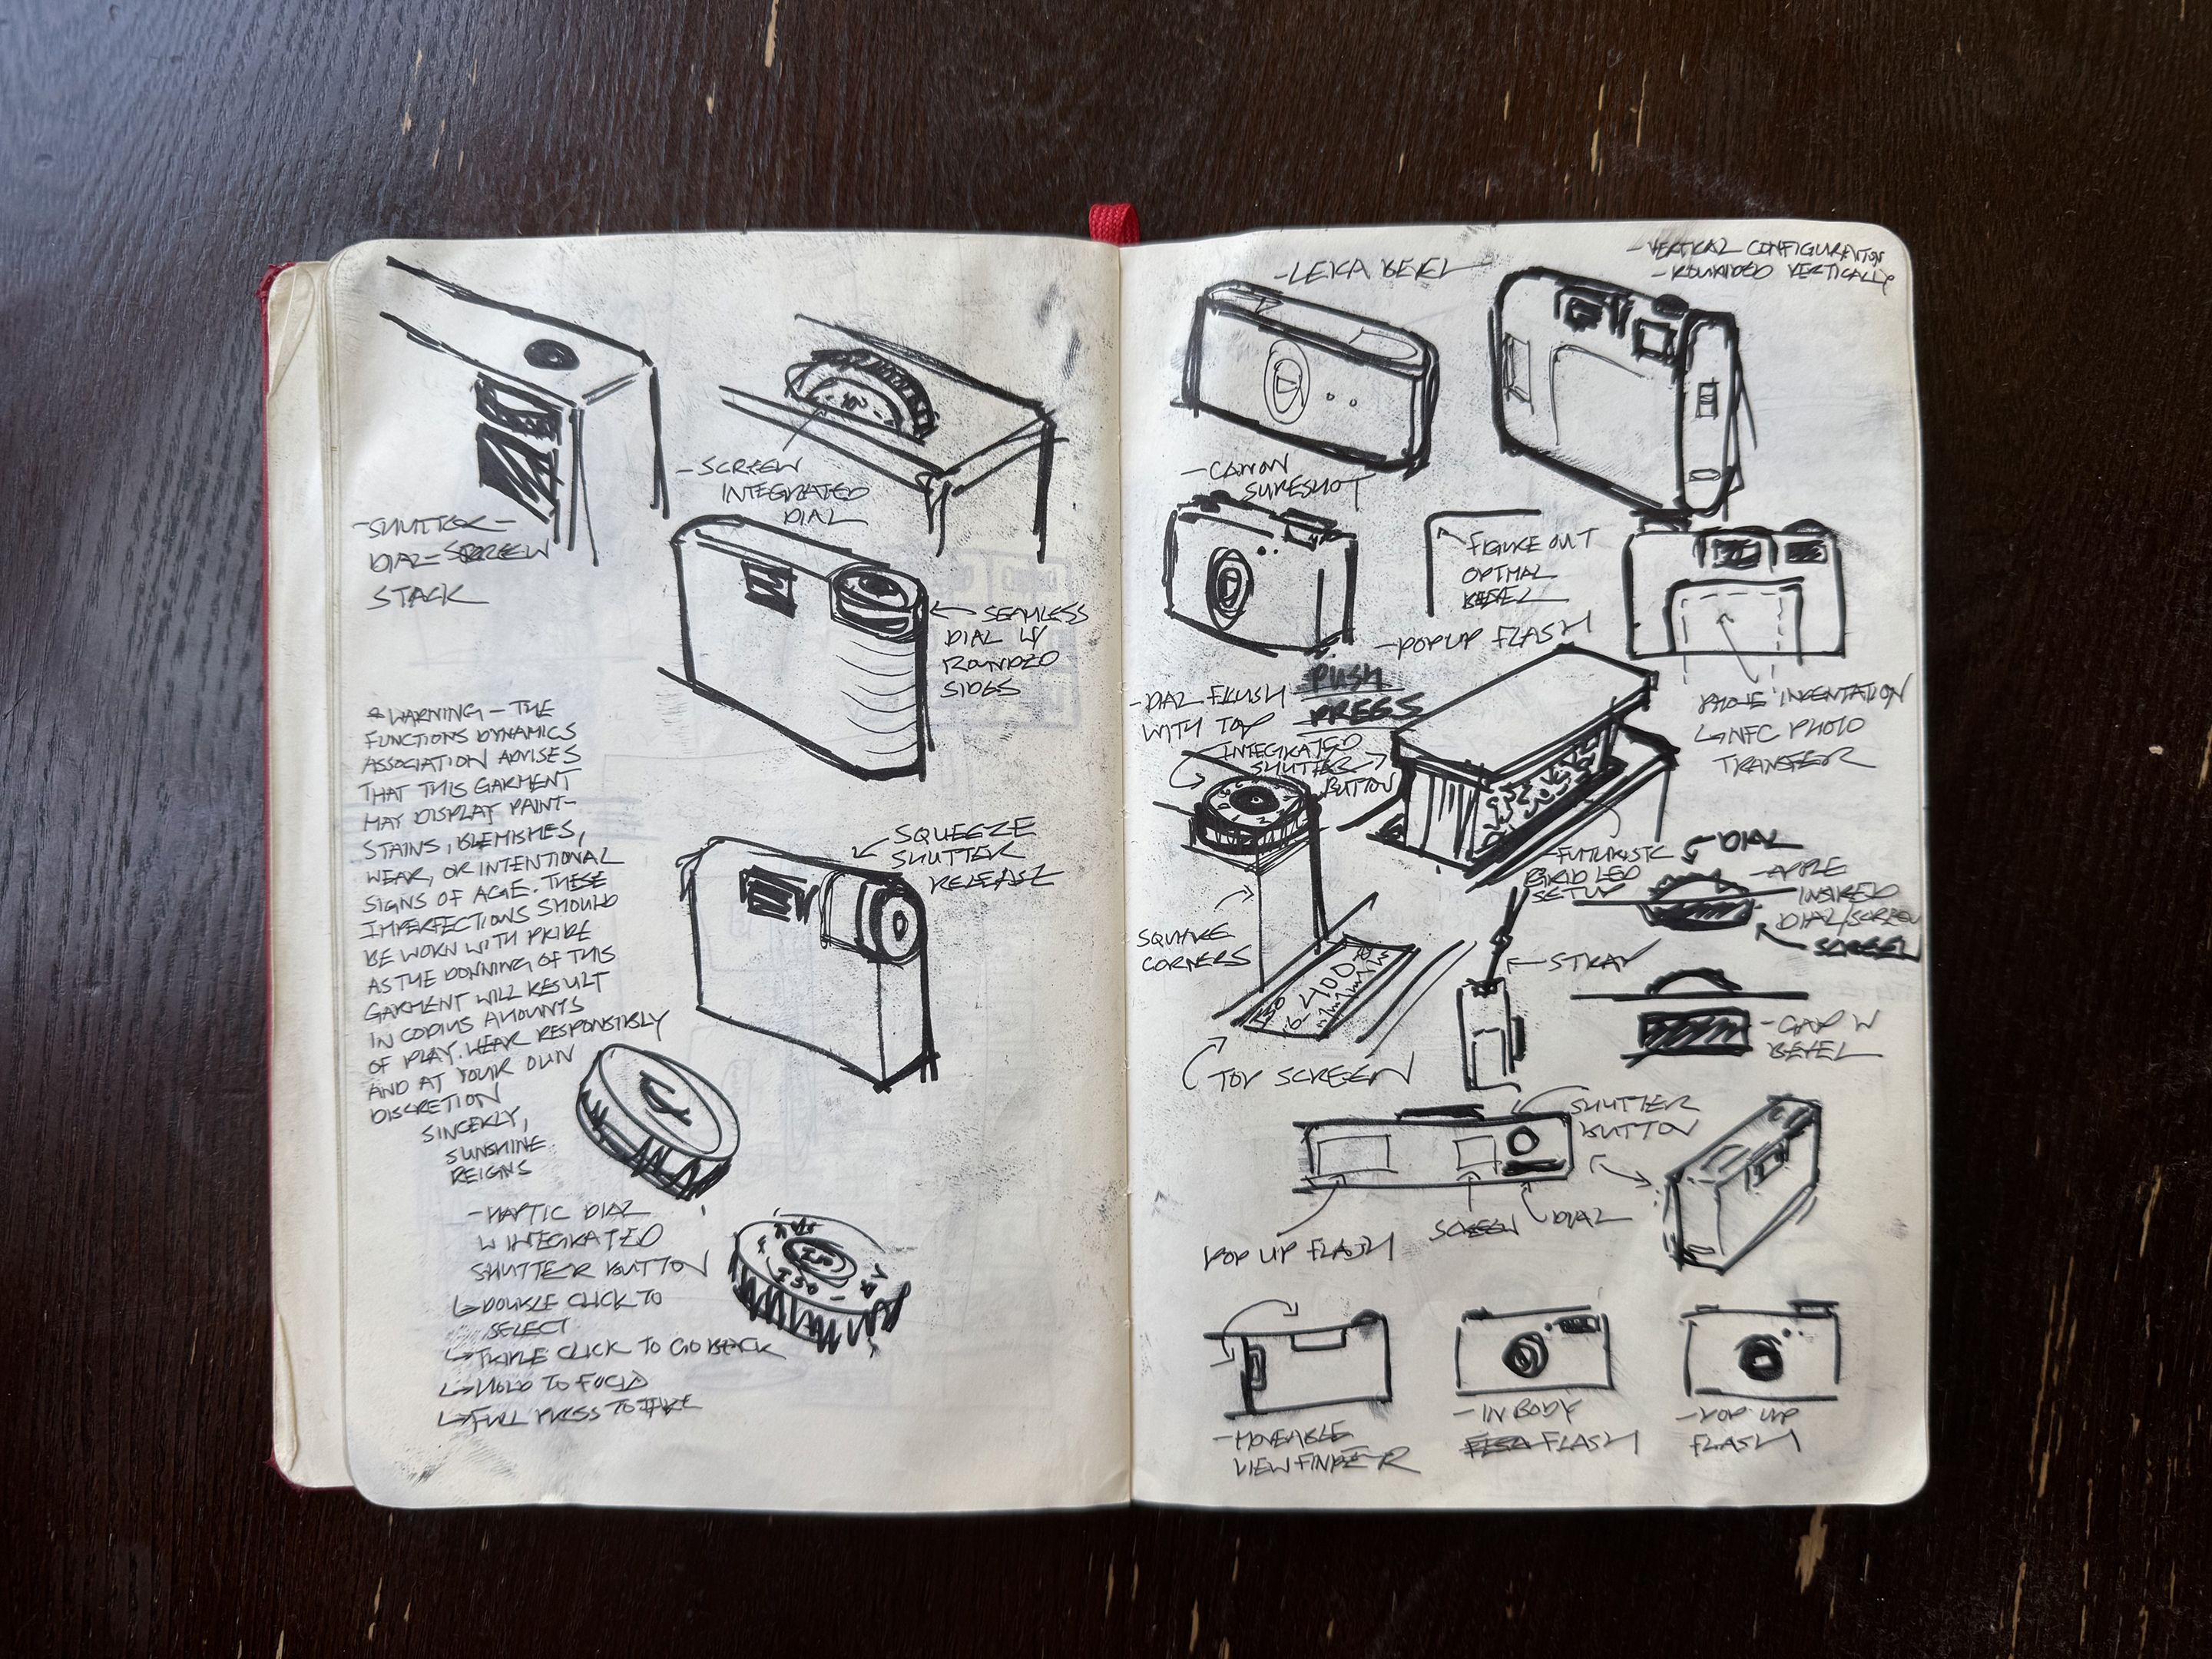 -SHUTTER-
DIAL-SCREEN
STACK
-SCREEN
INTEGRATED
DIAL
SEAMLESS
DIAL W/
ROUNDED
SIDES
* WARNING - THE
FUNCTIONS DYNAMICS
ASSOCIATION ADVISES
THAT THIS GARMENT
MAY DISPLAY PAINT-
STAINS, BLEMISHES,
WEAR, OR INTENTIONAL
SIGNS OF AGE. THESE
IMPERFECTIONS SHOULD
BE WORN WITH PRIDE
AS THE DONNING OF THIS
GARMENT WILL RESULT
IN COPIUS AMOUNTS
OF PLAY. WEAR RESPONSIBLY
AND AT YOUR OWN
DISCRETION
SINCERLY,
SUNSHINE
REIGNS
SQUEEZE
SHUTTER
RELEASE
-HAPTIC DIAL
W INTEGRATED
SHUTTER BUTTON
↳DOUBLE CLICK TO
SELECT
↳TRIPLE CLICK TO GO BACK
↳HOLD TO FOCUS
↳FULL PRESS TO TAKE
-LEIKA BEVEL
-VERTICAL CONFIGURATION
-ROUNDED VERTICALLY
-CANON
SURESHOT
FIGURE OUT
OPTMAL
BEVEL
-POPUP FLASH
PUSH
PRESS
-DIAL FLUSH
WITH TOP
INTEGRATED
SHUTTER
BUTTON
PHONE INDENTATION
↳NFC PHOTO
TRANSFER
-FUTURISTIC
GRID LED
SETUP
DIAL
-APPLE
INSPIRED
DIAL/SCREEN
SCREEN
SQUARE
CORNERS
400
TOP SCREEN
STRAP
-GAP W
BEVEL
SHUTTER
BUTTON
POP UP FLASH
SCREEN
DIAL
-MOVEABLE
VIEWFINDER
-IN BODY
FLASH
-POP UP
FLASH